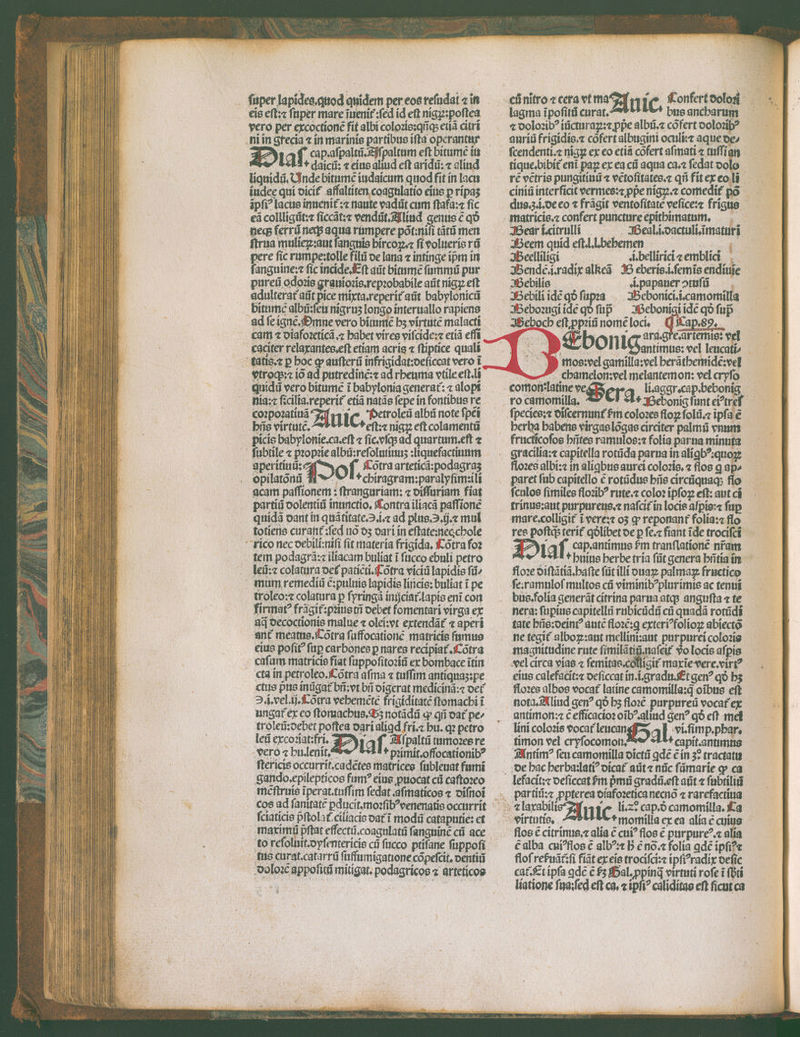 super lapides.quod quidem per eos resudat ⁊ in
eis est:⁊ super mare īuenit᷑:sed id est nigȝ:postea
vero per excoctionē fit albi coloris:qñqȝ etiā citri
ni in grecia ⁊ in marinis partibus ista operantur
Dias. cap.aspaltū.Aspaltum est bitumē iu
daicū: ⁊ eius aliud est aridū:⁊ aliud
liquidū.Unde bitumē iudaicum quod fit in lacu
iudee qui dicit᷑ affaltiten coagulatio eius ꝑ ripas
ipsiꝰ lacus inuenit᷑:⁊ naute vadūt cum stafa:⁊ sic
eā colligūt:⁊ siccāt:⁊ vendūt.Aliud genus ē qđ
necȝ ferrū necȝ aqua rumpere pōt:nisi tātū men
strua mulieꝝ:aut sanguis hircoꝝ.⁊ si volueris rū
pere sic rumpe:tolle filū de lana ⁊ intinge ipm in
sanguine:⁊ sic incide.Est aūt bitumē summū pur
pureū odoris grauioris.reprobabile aūt nigꝝ est
adulterat᷑ aūt pice mixta.reperit᷑ aūt babylonicū
bitumē albū:seu nigruȝ longo interuallo rapiens
ad se ignē.Omne vero bitumē hȝ virtutē malacti
cam ⁊ diaforeticā.⁊ habet vires viscide:⁊ etiā effi
caciter relaxantes.est etiam acris ⁊ stiptice quali
tatis.⁊ ꝑ hoc ꝙ austerū infrigidat:desiccat vero ī
vtroqȝ:⁊ iō ad putredinē:⁊ ad rheuma vtile est.li
quidū vero bitumē ī babylonia generat᷑:⁊ alopi
nia:⁊ sicilia.reperit᷑ etiā natās sepe in fontibus re
corporatiuā Auic. Petroleū albū note spēi
hñs virtutē. est:⁊ nigꝝ est colamentū
picis babylonie.ca.est ⁊ sic.vsqȝ ad quartum.est ⁊
subtile ⁊ proprie albū:resolutiuuȝ :liquefactiuum
aperitiuū:⁊ Pos. Cōtra arteticā:podagraȝ
opilatōnū chiragram:paralysim:ili
acam passionem : stranguriam: ⁊ dissuriam fiat
partiū dolentiū inunctio. Contra iliacā passionē
quidā dant in quātitate.Ə.i.⁊ ad plus.Ə.ij.⁊ mul
totiens curant᷑ :sed nō dȝ dari in estate:nec chole
rico nec debili:nisi sit materia frigida. Cōtra for
tem podagrā:⁊ iliacam buliat ī succo ebuli petro
leū:⁊ colatura det᷑ patiēti.Cōtra viciū lapidis sū
mum remediū ē:puluis lapidis lincis: buliat ī pe
troleo:⁊ colatura ꝑ syringā inijciat᷑.lapis enī con
firmatꝰ frāgit᷑:prius tñ debet fomentari virga ex
aq̄ decoctionis malue ⁊ olei:vt extendāt᷑ ⁊ aperi
ant᷑ meatus.Cōtra suffocationē matricis fumus
eius positꝰ suꝑ carbones ꝑ nares recipiat᷑.Cōtra
casum matricis fiat suppositoriū ex bombace ītin
cta in petroleo.Cōtra asma ⁊ tussim antiquaȝ:pe
ctus prius inūgat᷑ bñ:vt bñ digerat medicinā:⁊ det᷑
Ə.i.vel.ij.Cōtra vehemētē frigiditatē stomachi ī
ungat᷑ ex eo stomachus.Sȝ notādū ꝙ qñ dat᷑ pe
troleū:debet postea dari aliqd fri.⁊ hu. qȝ petro
leū excoriat:fri. Dias. Aspaltū tumores re
vero ⁊ hu.lenit. primit.offocationibꝰ
stericis occurrit.cadētes matrices subleuat fumi
gando.epilepticos fumꝰ eius ꝓuocat cū castoreo
mēstruis īperat.tussim sedat.asmaticos ⁊ disnoi
cos ad sanitatē ꝓducit.morsibꝰ venenatis occurrit
sciaticis p̄stolat᷑.ciliacis dat᷑ ī modū cataputie: et
maximū p̄stat effectū.coagulatū sanguinē cū ace
to resoluit.dysentericis cū succo ptisane supposi
tus curat.catarrū suffumigatione cōpescit. dentiū
dolorē appositū mitigat. podagricos ⁊ arteticos
cū nitro ⁊ cera vt ma Auic. Confert dolori
lagma īpositū curat. bus ancharum
⁊ doloribꝰ iūcturaꝝ:⁊ ꝓpe albū.⁊ cōfert doloribꝰ
auriū frigidis.⁊ cōfert albugini oculi:⁊ aque de
scendenti.⁊ nigꝝ ex eo etiā cōfert asmati ⁊ tussi an
tique.bibit᷑ enī paꝝ ex ea cū aqua ca.⁊ sedat dolo
rē vētris pungitiuū ⁊ vētositates.⁊ qñ fit ex eo li
ciniū interficit vermes:⁊ ꝓpe nigꝝ.⁊ comedit᷑ pō
dus.ʒ.i.de eo ⁊ frāgit ventositatē vesice:⁊ frigus
matricis.⁊ confert puncture epithimatum.
Bear i.citrulli Beal.i.dactuli.īmaturi
Beem quid est.l.l.behemen
Beelliligi .i.bellirici ⁊ emblici
Bendē.i.radix alkeā Beberis.i.semīs endiuie
Bebilis .i.papauer ɔtusū
Bebili idē qđ supra Bebonici.i.camomilla
Beborngi idē qđ suꝑ Bebonigi idē qđ suꝑ
Beboch est ꝓpriū nomē loci. ¶ Cap.89.
BEbonig ara.gre.artemis: vel
antimus: vel leucati
mos:vel gamilla:vel berāthemidē:vel
chamelon:vel melantemon: vel cryso
comon:latine ve Sera. li.aggr.cap.bebonig
ro camomilla. Bebonig sunt eiꝰ tres
species:⁊ discernunt᷑ ẜm colores floꝝ solū.⁊ ipsa ē
herba habens virgas lōgas circiter palmū vnum
fructicosos hñtes ramulos:⁊ folia parua minuta
gracilia:⁊ capitella rotūda parua in aliqbꝰ:quoꝝ
flores albi:⁊ in aliqbus aurei coloris. ⁊ flos q ap
paret sub capitello ē rotūdus hñs circūquaqȝ flo
sculos similes floribꝰ rute.⁊ color ipsoꝝ est: aut ci
trinus:aut purpureus.⁊ nascit᷑ in locis aspis:⁊ suꝑ
mare.colligit᷑ ī vere:⁊ oȝ ꝙ reponant᷑ folia:⁊ flo
res postqȝ terit᷑ qđlibet de ꝑ se.⁊ fiant īde trocisci
Dias. cap.antimus ẜm translationē nr̄am
huius herbe tria sūt genera hñtia in
flore distātiā.haste sūt illi duaꝝ palmaꝝ fructico
se.ramulos multos cū viminibꝰ plurimis ac tenui
bus.folia generāt citrina parua atqȝ angusta ⁊ te
nera: supius capitellū rubicūdū cū quadā rotūdi
tate hñs:deintꝰ autē florē:q exteriꝰ folioꝝ abiectō
ne tegit᷑ alboꝝ:aut mellini:aut purpurei coloris
magnitudine rute similātiū.nascit᷑ vo locis aspis
vel circa vias ⁊ semitas.colligit᷑ maxīe vere.virtꝰ
eius calefacit:⁊ desiccat in.i.gradu.Et genꝰ qđ hȝ
flores albos vocat᷑ latine camomilla:q̄ oībus est
nota.Aliud genꝰ qđ hȝ florē purpureū vocat᷑ ex
antimon:⁊ ē efficacior oībꝰ.aliud genꝰ qđ est mel
lini coloris vocat᷑ leucan Gal. vi.simp.phar.
timon vel crysocomon. capit.antimus
Antimꝰ seu camomilla dictū qdē ē in ȝ° tractatu
de hac herba:latiꝰ dicat᷑ aūt ⁊ nūc sūmarie ꝙ ca
lefacit:⁊ desiccat ẜm p̄mū gradū.est aūt ⁊ subtiliū
partiū:⁊ ꝓpterea diaforetica necnō ⁊ rarefactiua
⁊ laxabilis Auic. li.2° cap.đ camomilla. Ca
virtutis. momilla ex ea alia ē cuius
flos ē citrinus.⁊ alia ē cuiꝰ flos ē purpureꝰ.⁊ alia
ē alba cuiꝰ flos ē albꝰ:⁊ h̄ ē nō.⁊ folia qdē ipsiꝰ ⁊
flos ẜuāt᷑:si fiāt ex eis trocisci:⁊ ipsiꝰ radix desic
cat᷑.Et ipsa qdē ē ẜȝ Gal.ꝓpinq̄ virtuti rose ī sbti
liatione sua:sed est ca. ⁊ ipsiꝰ caliditas est sicut ca